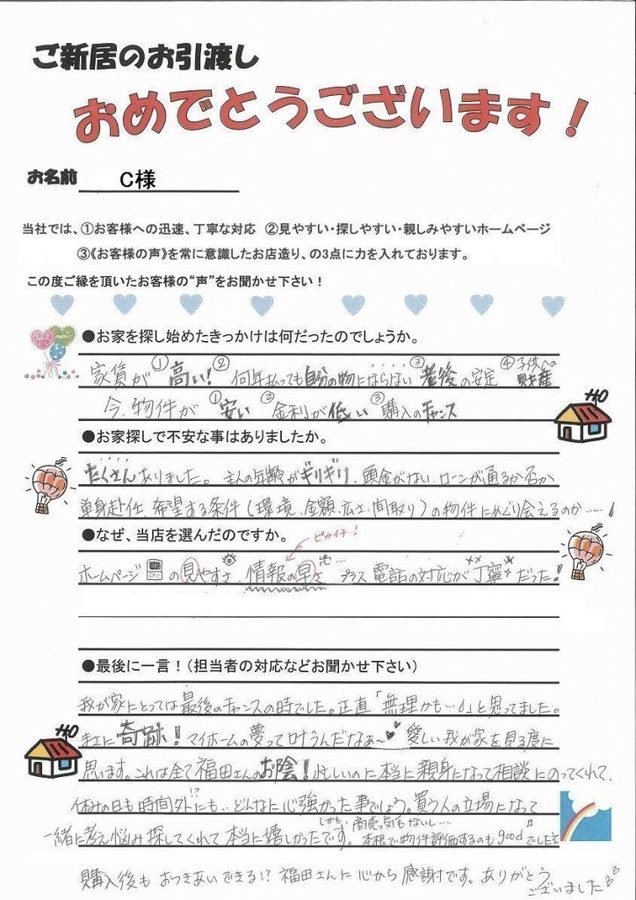 ご新居のお引渡し
おめでとうございます！
お名前 C様
当社では、①お客様への迅速、丁寧な対応 ②見やすい・探しやすい・親しみやすいホームページ
③《お客様の声》を常に意識したお店造り、の3点に力を入れております。
この度ご縁を頂いたお客様の“声”をお聞かせ下さい！
●お家を探し始めたきっかけは何だったのでしょうか。
家賃が①高い！②何年払っても自分の物にならない③老後の安定④子供への財産
今、物件が①安い②金利が低い③購入のチャンス
●お家探しで不安な事はありましたか。
たくさんありました。主人の年齢がギリギリ、頭金がない、ローンが通るか否か
単身赴任、希望する条件（環境、金額、広さ、間取り）の物件にめぐり会えるのか……！
●なぜ、当店を選んだのですか。
ピカイチ！
ホームページの見やすさ、情報の早さ プラス電話の対応が丁寧だった！
●最後に一言！（担当者の対応などお聞かせ下さい）
我が家にとっては最後のチャンスの時でした。正直「無理かも…」と思ってました。
奇跡！マイホームの夢って叶うんだなぁ～愛しい我が家を見る度に
思います。これは全て福田さんのお陰！忙しいのに本当に親身になって相談にのってくれて、
休みの日も時間外にも…どんなに心強かった事でしょう。買う人の立場になって
一緒に考え悩み探してくれて本当に嬉しかったです。しかも、商売っ気もないし…本根で物件評価するのもgoodでした
購入後もおつきあいできる!?福田さんに心から感謝です。ありがとう
ございました